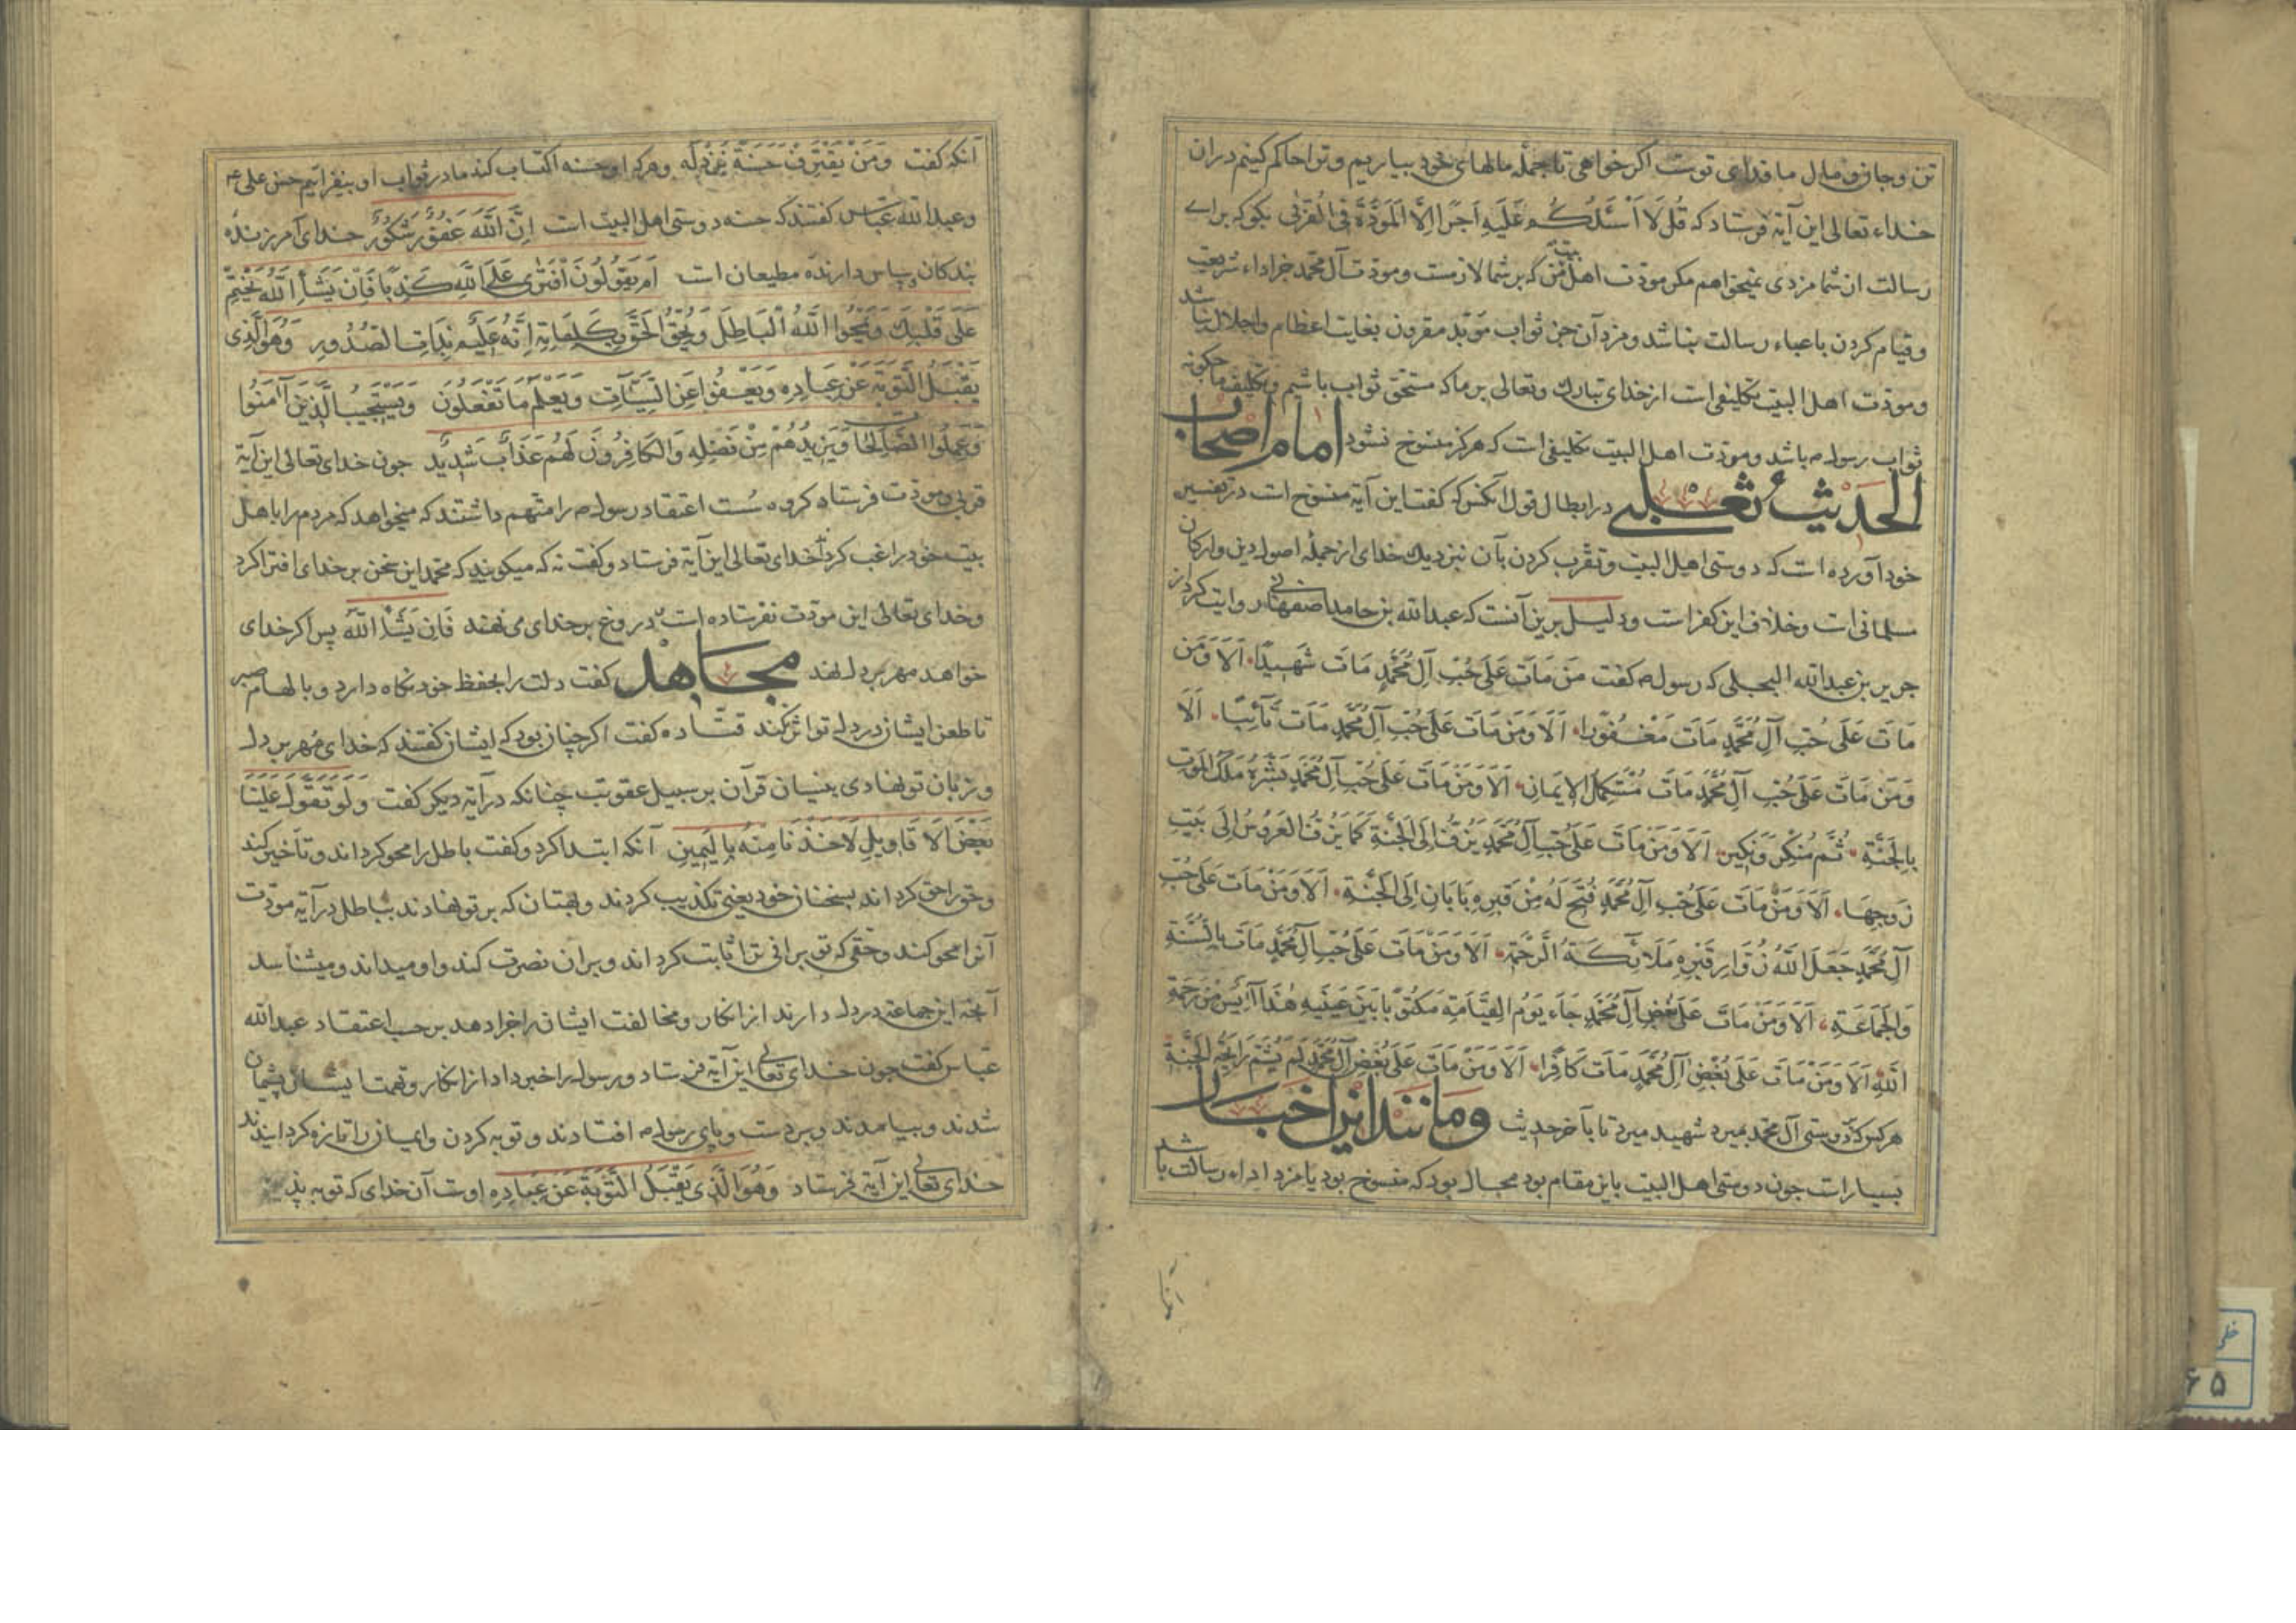 تن و جان و مال ما فدای توست اکر خواهی تا جمله مالهای خود بیاریم و ترا حاکم کنیم دران
خداء تعالی این آیة فرستاد که قُل لَا اَسْئَلُكُم عَلَیهِ اَجرًا اِلَّا المَوَدَّةَ فِی القُربٰی بکو که برای
رسالت از شما مزدی نمیخواهم مکر مودت اهل بیت من که بر شما لازمست و مودت آل محمد جز اداء شریعت
و قیام کردن باعباء رسالت نباشد و مزد آن جز ثواب مؤبد مقرون بغایت اعظام و اجلال نباشد
و مودت اهل البیت تکلیفی است از خدای تبارك و تعالی بر ما که مستحق ثواب باشیم و تکلیف ما چکونه
ثواب رسول ص باشد و مودت اهل البیت تکلیفی است که هرکز منسوخ نشود امام اصحاب
الحدیث ثعلبی در ابطال قول آنکس که کفت این آیة منسوخ است در تفسیر
خود آورده است که دوستی اهل البیت و تقرب کردن بآن نزدیك خدای از جمله اصول دین و ارکان
مسلمانی است و خلاف این کفر است و دلیل برین آنست که عبدالله بن حامد اصفهانی روایت کرد از
جریر بن عبدالله البجلی که رسول ص کفت مَن مَاتَ عَلَی حُبِّ آلِ مُحَمَّدٍ مَاتَ شَهیدًا اَلَا وَ مَن
مَاتَ عَلَی حُبِّ آلِ مُحَمَّدٍ مَاتَ مَغْفُورًا اَلَا وَ مَن مَاتَ عَلَی حُبِّ آلِ مُحَمَّدٍ مَاتَ تَائِبًا اَلَا
وَ مَن مَاتَ عَلَی حُبِّ آلِ مُحَمَّدٍ مَاتَ مُسْتَکمِلَ الاِیمَانِ اَلَا وَ مَن مَاتَ عَلَی حُبِّ آلِ مُحَمَّدٍ بَشَّرَهُ مَلَكُ المَوتِ
بِالجَنَّةِ ثُمَّ مُنکِرٌ وَ نَکیرٌ اَلَا وَ مَن مَاتَ عَلَی حُبِّ آلِ مُحَمَّدٍ یُزَفُّ اِلَی الجَنَّةِ کَمَا یُزَفُّ العَرُوسُ اِلَی بَیتِ
زَوجِهَا اَلَا وَ مَن مَاتَ عَلَی حُبِّ آلِ مُحَمَّدٍ فُتِحَ لَهُ مِن قَبرِهِ بَابَانِ اِلَی الجَنَّةِ اَلَا وَ مَن مَاتَ عَلَی حُبِّ
آلِ مُحَمَّدٍ جَعَلَ اللّٰهُ زُوَّارَ قَبرِهِ مَلَائِکَةَ الرَّحمَةِ اَلَا وَ مَن مَاتَ عَلَی حُبِّ آلِ مُحَمَّدٍ مَاتَ بِالسُّنَّةِ
وَ الجَمَاعَةِ اَلَا وَ مَن مَاتَ عَلَی بُغضِ آلِ مُحَمَّدٍ جَاءَ یَومَ القِیَامَةِ مَکتُوبًا بَینَ عَینَیهِ هٰذَا آیِسٌ مِن رَحمَةِ
اللّٰهِ اَلَا وَ مَن مَاتَ عَلَی بُغضِ آلِ مُحَمَّدٍ مَاتَ کَافِرًا اَلَا وَ مَن مَاتَ عَلَی بُغضِ آلِ مُحَمَّدٍ لَم یَشُمَّ رَائِحَةَ الجَنَّةِ
هر کس که در دوستی آل محمد بمیرد شهید میرد تا بآخر حدیث و مانند این اخبار
بسیار است چون دوستی اهل البیت باین مقام بود محال بود که منسوخ بود یا مزد اداء رسالت باشد
آنکه کفت وَ مَن یَقتَرِف حَسَنَةً نَزِد لَهُ و هر که او حسنه اکتساب کند ما در ثواب او بیفزائیم حسن علی ع
و عبدالله عباس کفتند که حسنه دوستی اهل البیت است اِنَّ اللّٰهَ غَفُورٌ شَکُورٌ خدای آمرزنده
بندکان و سپاس دارنده مطیعان است اَم یَقُولُونَ افتَرٰی عَلَی اللّٰهِ کَذِبًا فَاِن یَشَأِ اللّٰهُ یَختِم
عَلَی قَلبِكَ وَ یَمحُوا اللّٰهُ البَاطِلَ وَ یُحِقُّ الحَقَّ بِکَلِمَاتِهِ اِنَّهُ عَلیمٌ بِذَاتِ الصُّدُورِ وَ هُوَ الَّذِی
یَقبَلُ التَّوبَةَ عَن عِبَادِهِ وَ یَعفُوا عَنِ السَّیِّئَاتِ وَ یَعلَمُ مَا تَفعَلُونَ وَ یَستَجِیبُ الَّذِینَ آمَنُوا
وَ عَمِلُوا الصَّالِحَاتِ وَ یَزِیدُهُم مِن فَضلِهِ وَ الکَافِرُونَ لَهُم عَذَابٌ شَدِیدٌ چون خدای تعالی این آیة
قربی و مودت فرستاد کروه سست اعتقاد رسول ص را متهم داشتند که میخواهد که مردم را باهل
بیت خود راغب کرداند خدای تعالی این آیة فرستاد و کفت نه که میکویند که محمد این سخن بر خدای افترا کرد
و خدای تعالی این مودت نفرستاده است دروغ بر خدای می نهند فَاِن یَشَأِ اللّٰهُ پس اکر خدای
خواهد مهر بر دل نهد مجاهد کفت دلت را بحفظ خود نکاه دارد و بالهام صبر
تا طعن ایشان در دل تو اثر نکند قتاده کفت اکر چنان بود که ایشان کفتند که خدای مهر بر دل
و زبان تو نهادی بنسیان قرآن بر سبیل عقوبت چنانکه در آیة دیکر کفت وَ لَو تَقَوَّلَ عَلَینَا
بَعضَ الاَقَاوِیلِ لَاَخَذنَا مِنهُ بِالیَمِینِ آنکه ابتدا کرد و کفت باطل را محو کرداند و تأخیر کند
و حق را حق کرداند بسخنان خود یعنی تکذیب کردند و بهتان که بر تو نهادند بباطل در آیة مودت
آنرا محو کند و حقی که تو برانی ترا ثابت کرداند و بران نصرت کند و او میداند و میشناسد
آنچه این جماعة در دل دارند از انکار و مخالفت ایشان را جزا دهد بر حسب اعتقاد عبدالله
عباس کفت چون خدای تعالی این آیة فرستاد و رسول را خبر داد از انکار و تهمت ایشان پشیمان
شدند و بیامدند و بر دست و پای رسول ص افتادند و توبه کردن و ایمان را تازه کردانیدند
خدای تعالی این آیة فرستاد وَ هُوَ الَّذِی یَقبَلُ التَّوبَةَ عَن عِبَادِهِ اوست آن خدای که توبه پذیرد
۶۵